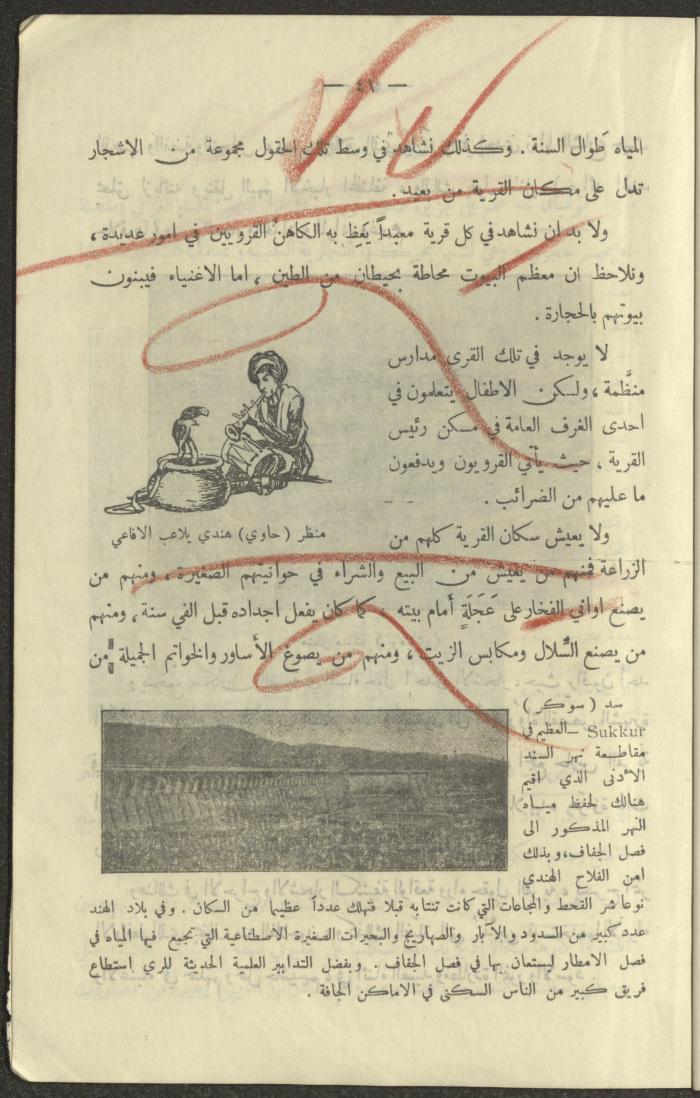 — ٤١ —
المياه طَوال السنة . وكذلك نشاهد في وسط تلك الحقول مجموعة من الاشجار
تدل على مكان القرية من بعيد .
ولا بد ان نشاهد في كل قرية معبداً يَعِظ به الكاهنُ القرويين في امور عديدة ،
ونلاحظ ان معظم البيوت محاطة بحيطان من الطين ، اما الاغنياء فيبنون
بيوتهم بالحجارة .
لا يوجد في تلك القرى مدارس
منظَّمة ، ولكن الاطفال يتعلمون في
احدى الغرف العامة في مسكن رئيس
القرية ، حيث يأتي القرويون ويدفعون
ما عليهم من الضرائب .
ولا يعيش سكان القرية كلهم من
منظر ( حاوي ) هندي يلاعب الافاعي
الزراعة فمنهم من يعيش من البيع والشراء في حوانيتهم الصغيرة ، ومنهم من
يصنع اواني الفخار على عَجَلَةٍ أمام بيته ، كما كان يفعل اجداده قبل الفي سنة ، ومنهم
من يصنع السِّلال ومكابس الزيت ، ومنهم من يصوغ الأساور والخواتم الجميلة من
سد ( سوكر )
Sukkur ـ العظيم في
مقاطعة نهر السند
الأدنى الذي اقيم
هنالك لحفظ مياه
النهر المذكور الى
فصل الجفاف، وبذلك
امن الفلاح الهندي
نوعا شر القحط والمجاعات التي كانت تنتابه قبلا فتهلك عدداً عظيما من السكان . وفي بلاد الهند
عدد كبير من السدود والآبار والصهاريج والبحيرات الصغيرة الاصطناعية التي تجمع فيها المياه في
فصل الامطار ليستعان بها في فصل الجفاف . وبفضل التدابير العلمية الحديثة للري استطاع
فريق كبير من الناس السكنى في الاماكن الجافة .